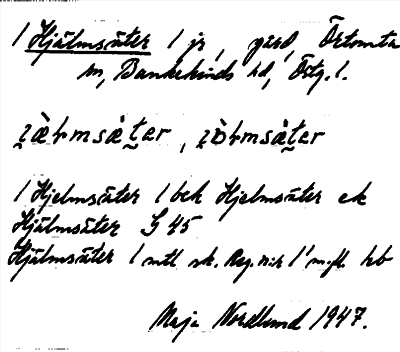 1 Hjälmsäter 1 jr, gård, Örtomta
sn, Bankekinds hd, Östg. l.
1 Hjelmsäter 1 bek Hjelmsäter ek
Hjälmsäter G 45
Hjälmsäter 1 mtl sk. Reg. n:r 1¹ m.fl. hb
Maja Nordlund 1947.